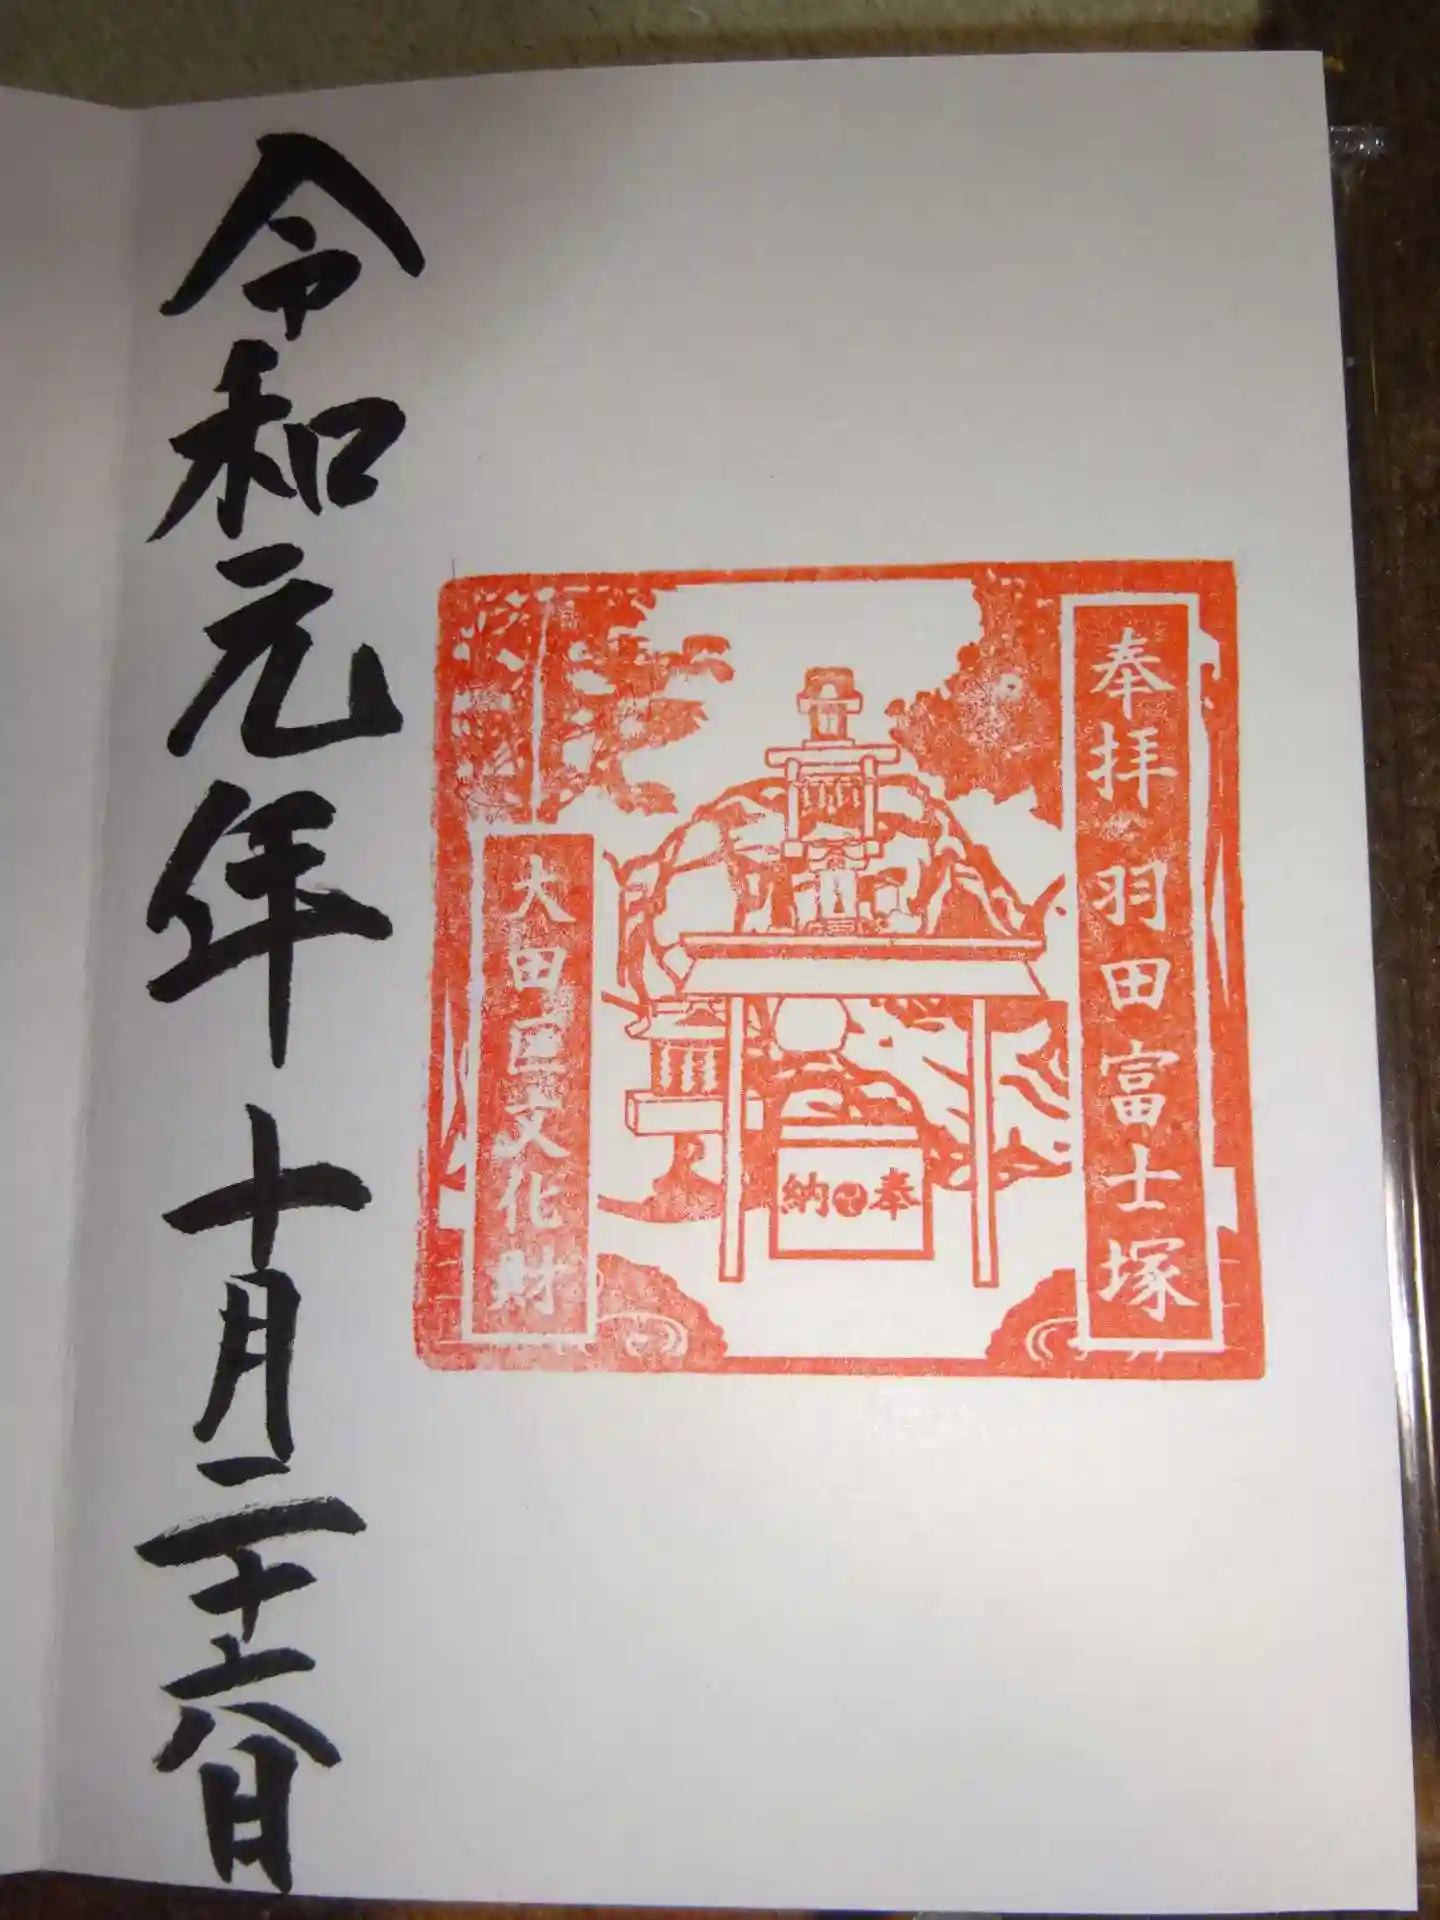 奉拝 羽田富士塚
奉納
大田区文化財
令和元年 十月二十六日